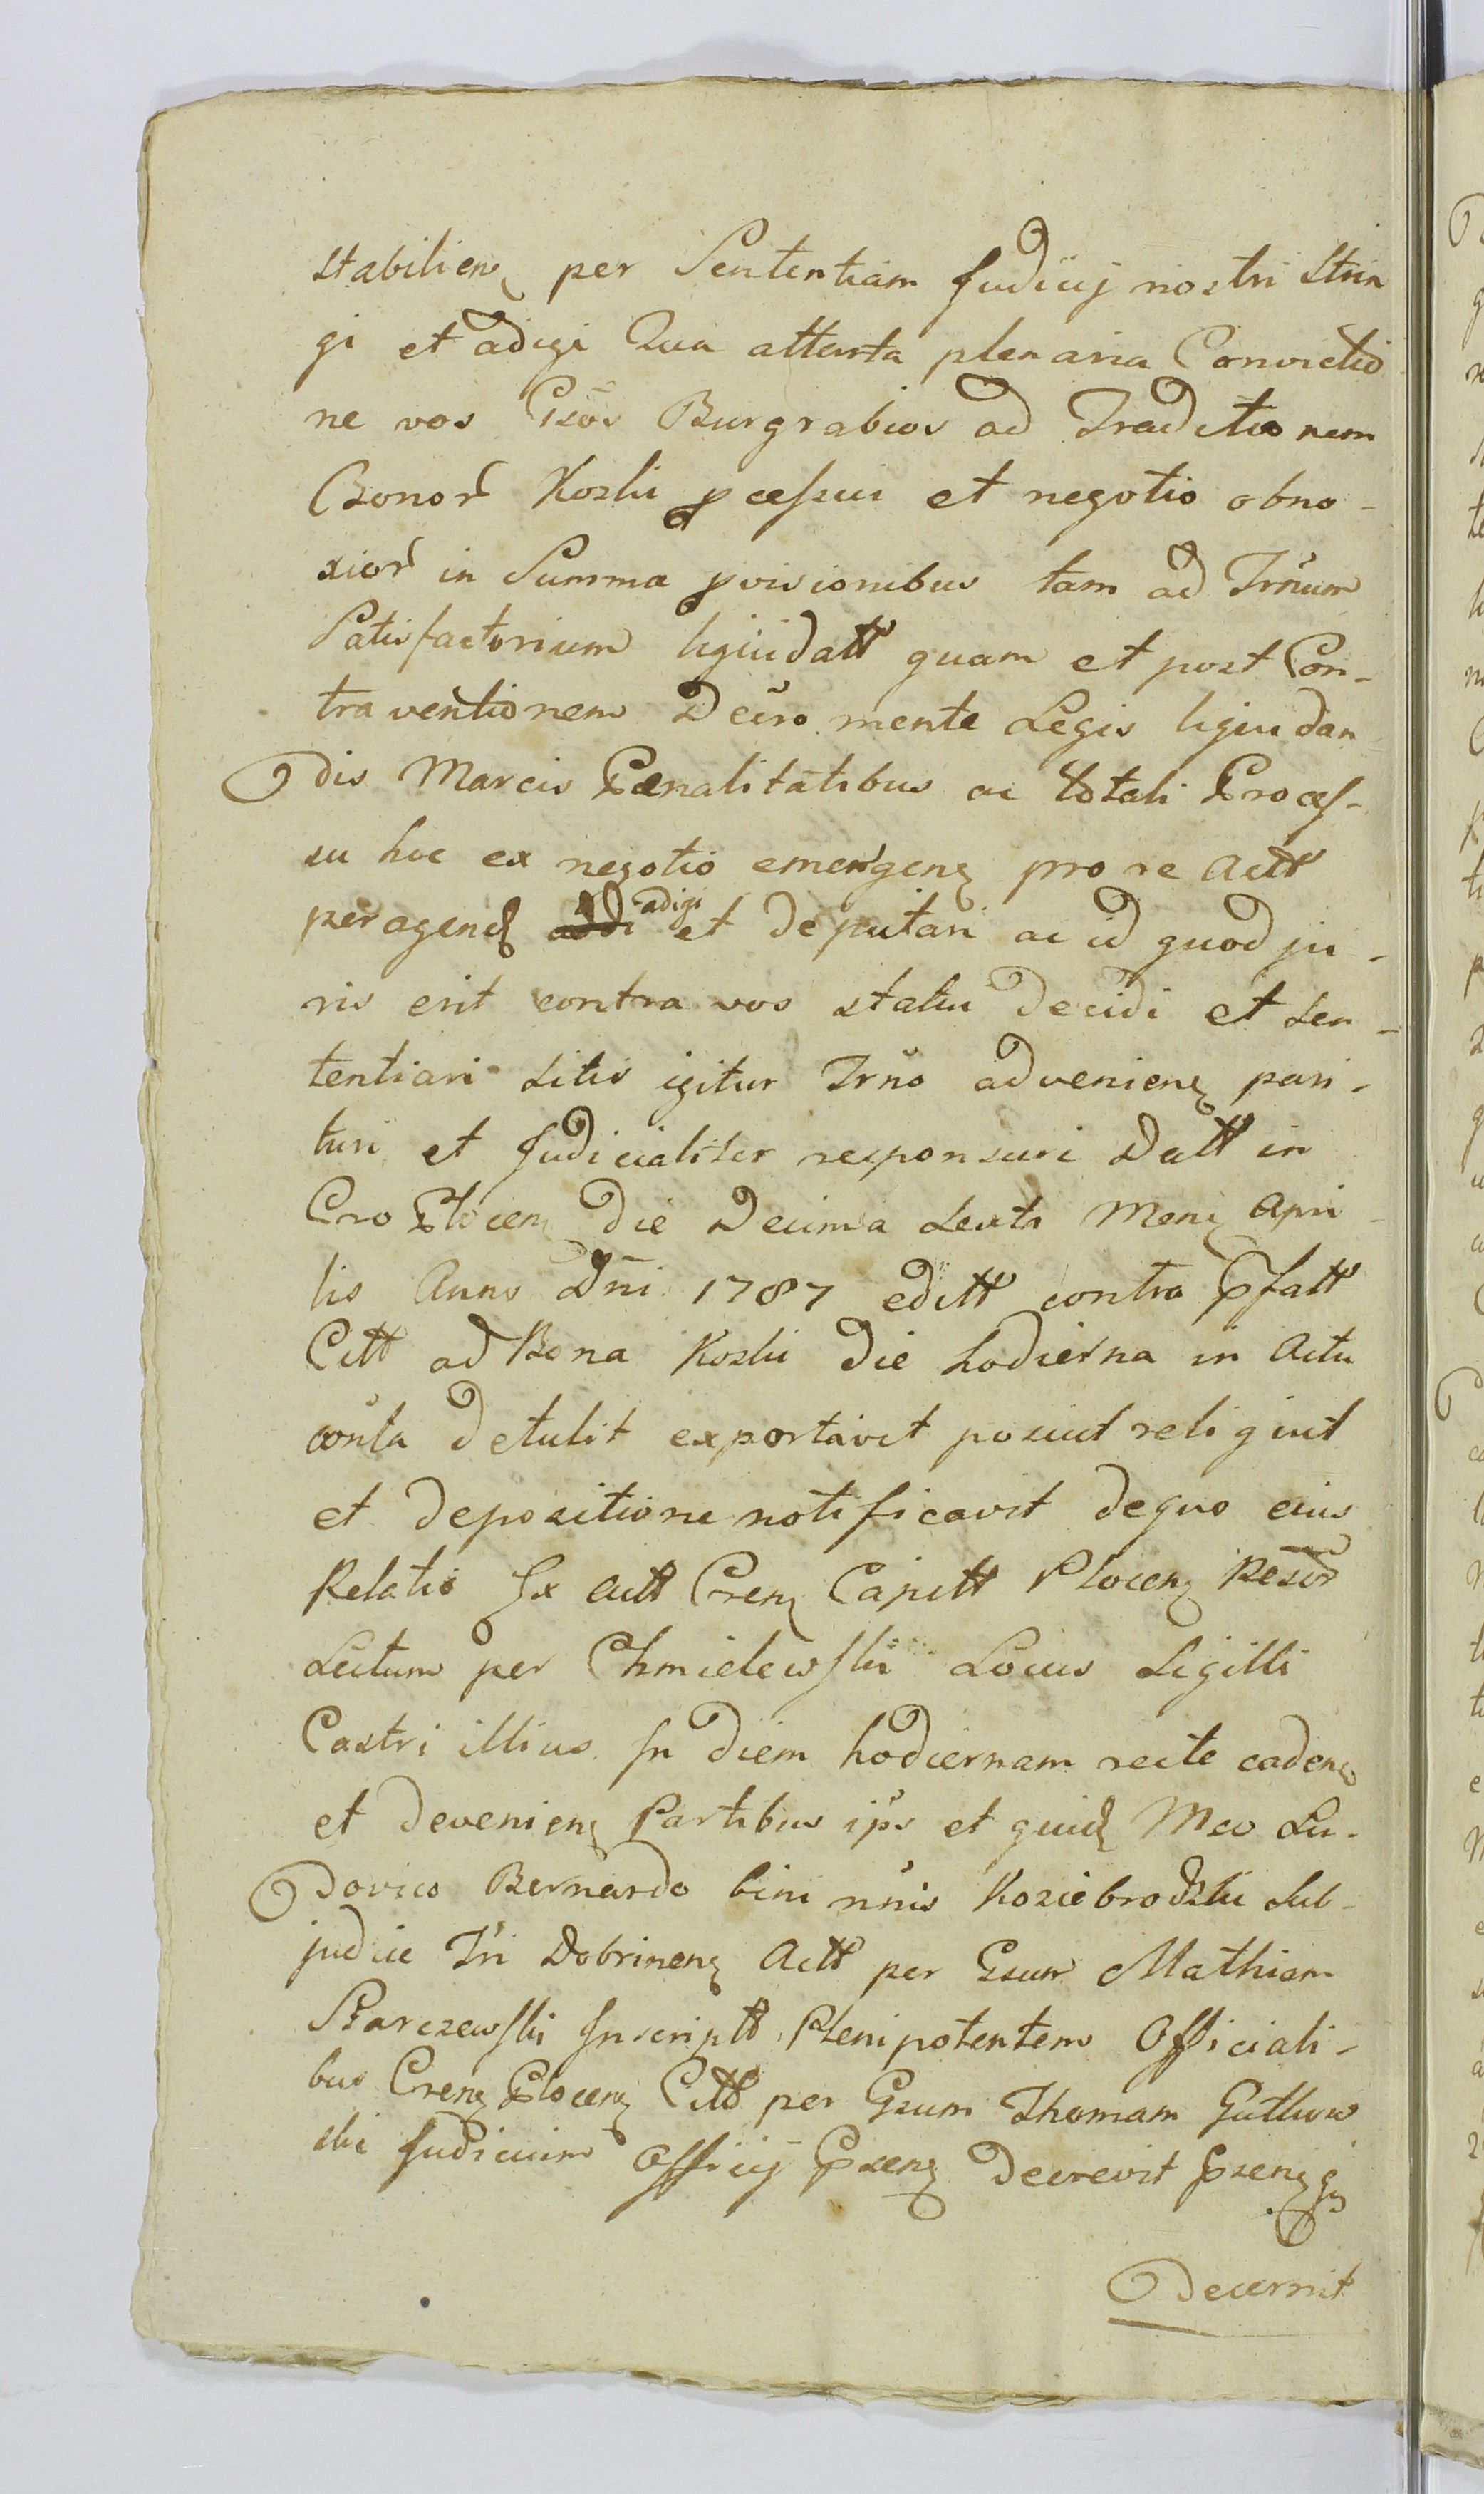 stabilien per Sententiam Judicij nostri strin
gi et adigi Qua attenta plenaria Convictio
ne vos Gsos Burgrabios ad Traditionem
Bonor Kozki et negotio obno-
xior in Summa pvisionibus tam ad Trnum
Satisfactorium liquidatt quam et post Con-
traventionem Decro mente Legis liquidan
dis Marcis Paenalitatibus ac totali Proces-
su hoc ex negotio emergen pro re Actt
peragend adigi et deputari ac id quod ju-
ris erit contra vos statui decidi et Sen-
tentiari Sitis igitur Trno advenien pari-
turi et Judicialiter responsuri Datt in
Cro Plocen die Decima Sexta Mens Apri
lis Anno Dni 1787 editt contra Pfatt
Citt ad Bona Kozki die hodierna in Actu
conta detulit exportavit posuit reliquit
et depositione notificavit dequo eius
Relatio Ex Actt Cren Capitt Plocen
Lectum per Chmielewski Locus Sigilli
Castri illius In diem hodiernam recte caden
et devenien Partibus ips et quid Mco Lu-
dovico Bernardo bini nnis Koziebrodzki Sub-
judice Tri Dobrinen Actt per Gsum Mathiam
Skarczewski Inscriptt Plenipotentem Officiali-
bus Cren Plocen Citt per Gsum Thomam Gutkow
ski Judicium Officij Psens Decrevit
Decernit